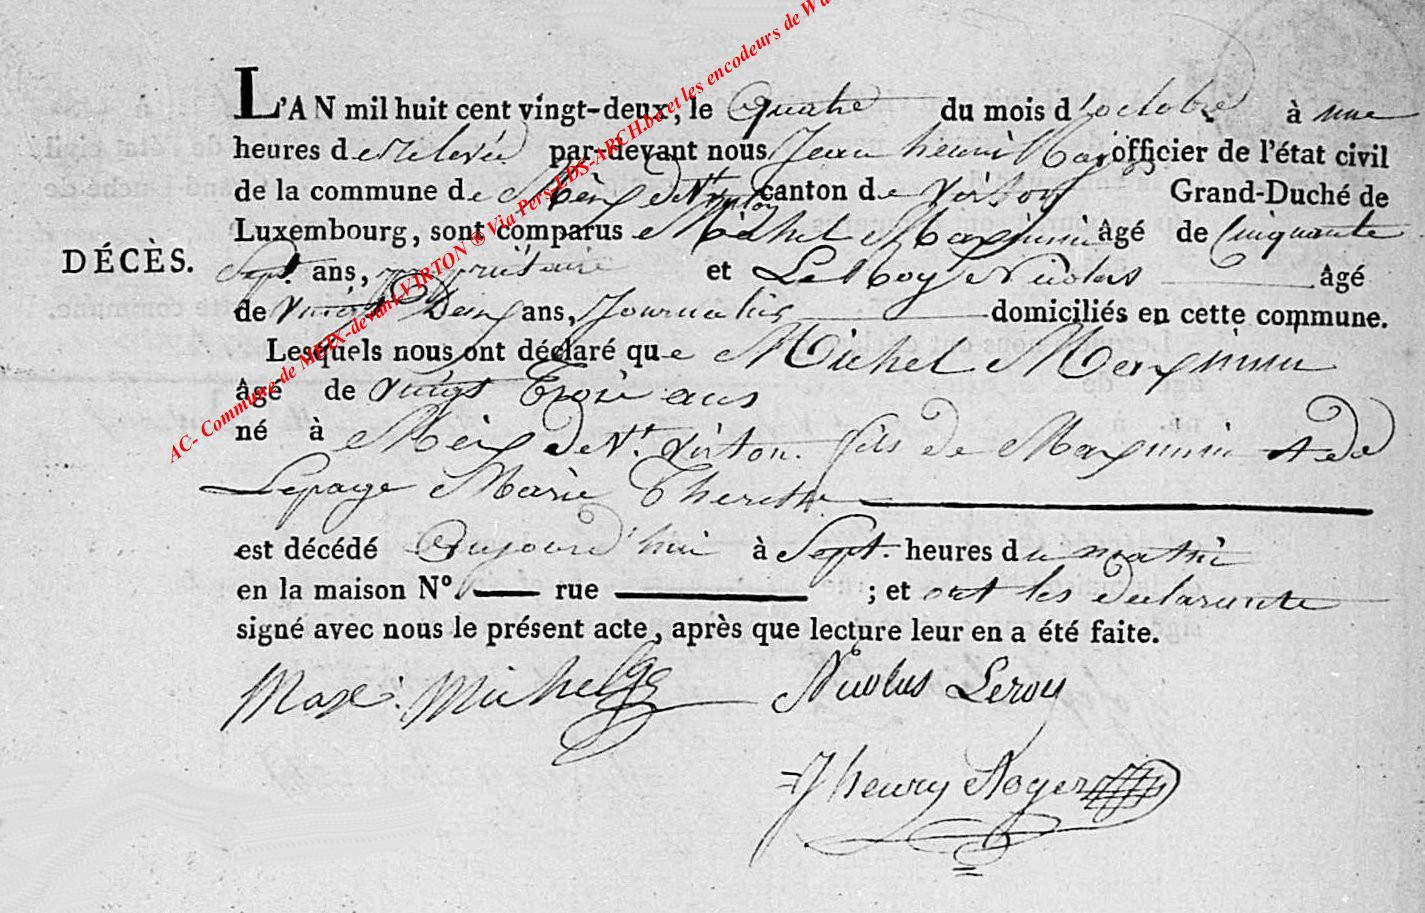 L'AN mil huit cent vingt-deux, le quatre du mois d'octobre à une
heures de relevée par-devant nous Jean henri officier de l'état civil
de la commune de Mèix dvt virton canton de Virton Grand-Duché de
Luxembourg, sont comparus Michel Maximin âgé de Cinquante
DÉCÈS.
Sept ans, propriétaire et Le Roy Nicolas âgé
de vingt Deux ans, Journalier domiciliés en cette commune.
Lesquels nous ont déclaré que Michel Maximin
âgé de vingt trois ans
né à Mèix devt. virton. fils de Maximin & de
Lepage Marie Therese
est décédé aujourd'hui à Sept heures du matin
en la maison N° rue ; et ont les declarants
signé avec nous le présent acte, après que lecture leur en a été faite.
Maxi. Michel
Nicolas Leroy
J henry Noger
AC- Commune de MEIX-devant-VIRTON ® Via Pers-LDS-ARCH.be et les encodeurs de